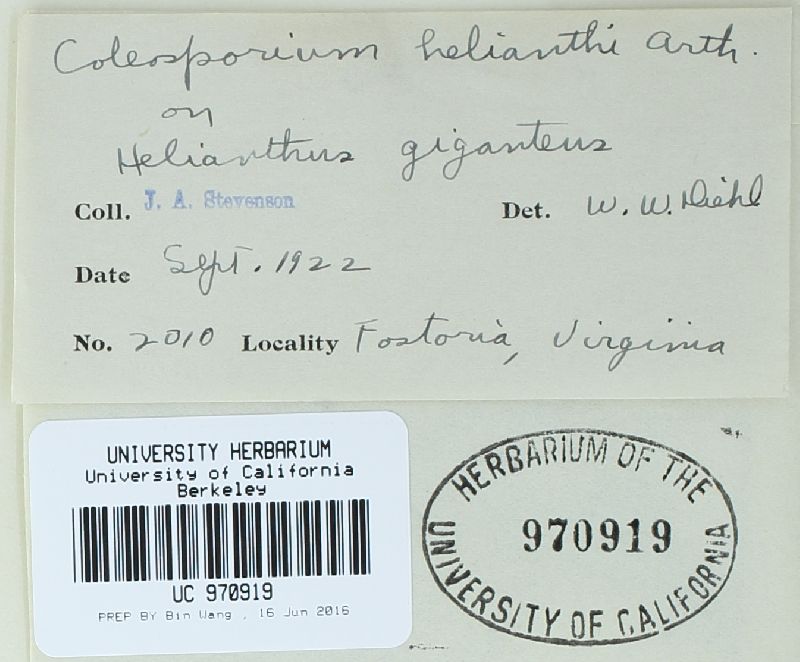 Coleosporium helianthi Arth.
on
Helianthus giganteus
Coll. J. A. Stevenson Det. W. W. Diehl
Date Sept. 1922
No. 2010 Locality Fostoria, Virginia
UNIVERSITY HERBARIUM
University of California
Berkeley
UC 970919
PREP BY Bin Wang , 16 Jun 2016
HERBARIUM OF THE
970919
UNIVERSITY OF CALIFORNIA